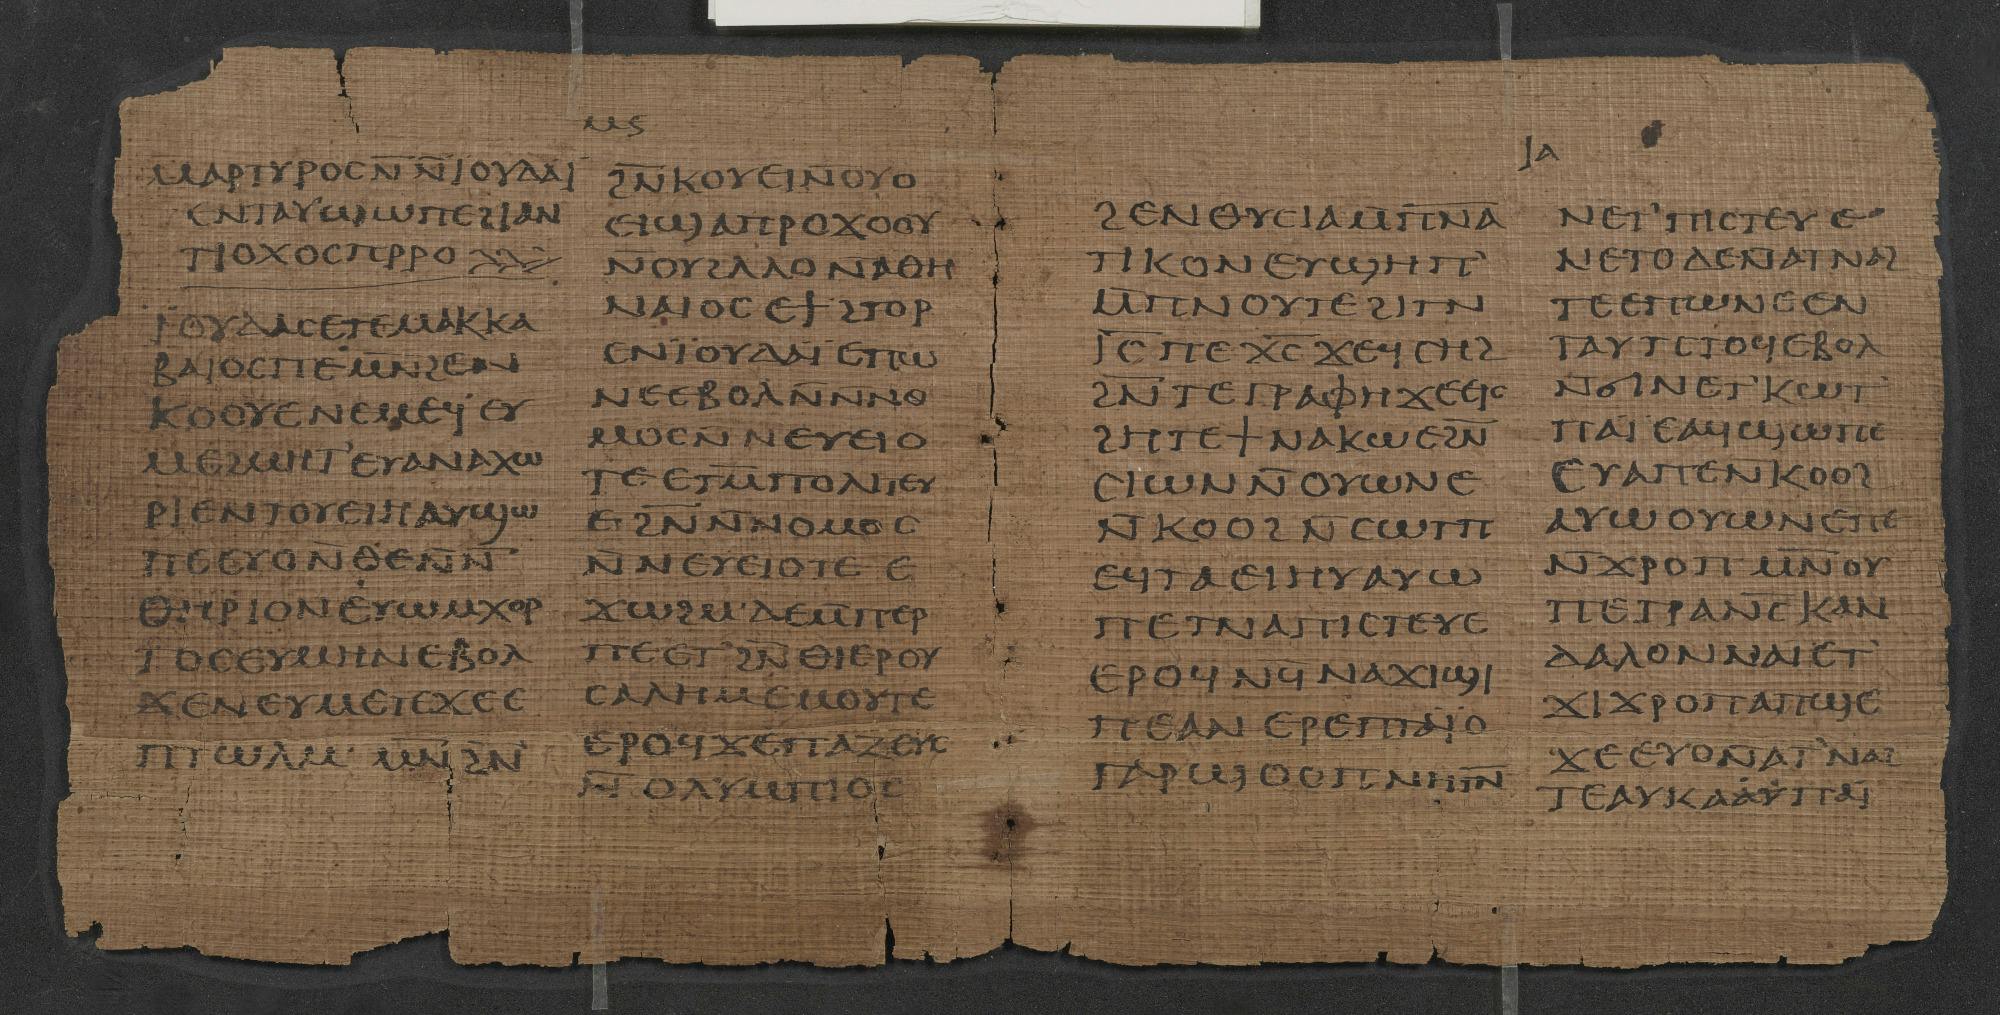 ⲙⲋ
ⲙⲁⲣⲧⲩⲣⲟⲥ ⲛ̄ ⲛ̄ⲓⲟⲩⲇⲁⲓ
ⲉⲛⲧⲁⲩϣⲱⲡⲉ ϩⲓ ⲁⲛ
ⲧⲓⲟⲭⲟⲥ ⲡⲣ̄ⲣⲟ
ⲓ̈ⲟⲩⲇⲁⲥ ⲉⲧⲉ ⲙⲁⲕⲕⲁ
ⲃⲁⲓⲟⲥ ⲡⲉ ⲙⲛ̄ ϩⲉⲛ
ⲕⲟⲟⲩⲉ ⲛⲉⲙⲉϥ ⲉⲩ
ⲙⲉϩⲙⲏⲧ ⲉⲩⲁⲛⲁⲭⲱ
ⲣⲓ ⲉⲛⲧⲟⲩⲉⲓⲏ ⲁⲩϣⲱ
ⲡⲉ ⲉⲩⲟ ⲛ̄ⲑⲉ ⲛ̄ⲛ̄
ⲑⲏⲣⲓⲟⲛ ⲉⲩⲱⲙ ⲭⲟⲣ
ⲧⲟⲥ ⲉⲩⲙⲏⲛ ⲉⲃⲟⲗ
ϫⲉⲛⲉⲩⲙⲉⲧⲉⲭⲉ ⲉ
ⲡⲧⲱⲗⲙ ⲙⲛ̄ ϩⲛ̄
ϩⲛ̄ⲕⲟⲩⲉⲓ ⲛ̄ⲟⲩⲟ
ⲉⲓϣ ⲁⲡⲣⲟ ϫⲟⲟⲩ
ⲛ̄ⲟⲩϩⲗⲗⲟ ⲛ̄ⲁⲑⲏ
ⲛⲁⲓⲟⲥ ⲉϯ ϩⲧⲟⲣ
ⲉⲛⲓ̈ⲟⲩⲇⲁⲓ̈ ⲉⲡⲱ
ⲛⲉ ⲉⲃⲟⲗ ⲛ̄ⲛ̄ⲛⲟ
ⲙⲟⲥ ⲛ̄ⲛⲉⲩⲉⲓⲟ
ⲧⲉ ⲉⲧⲙ̄ⲡⲟⲗⲓⲧⲉⲩ
ⲉ ϩⲛ̄ ⲛ̄ⲛⲟⲙⲟⲥ
ⲛ̄ⲛⲉⲩⲉⲓⲟⲧⲉ ⲉ
ϫⲱϩⲙ ⲇⲉ ⲙ̄ⲡⲉⲣ
ⲡⲉ ⲉⲧ ϩⲛ̄ ⲑⲓⲉⲣⲟⲩ
ⲥⲁⲗⲏⲙ ⲉⲙⲟⲩⲧⲉ
ⲉⲣⲟϥ ϫⲉ ⲡⲁⲍⲉⲩⲥ
ⲛ̄ⲟⲗⲩⲙⲡⲓⲟⲥ
ⲓⲁ
ϩⲉⲛⲑⲩⲥⲓⲁ ⲙ̄ⲡ̄ⲛ̄ⲁ
ⲧⲓⲕⲟⲛ ⲉⲩϣⲏⲡ
ⲙ̄ⲡⲛⲟⲩⲧⲉ ϩⲓⲧⲛ
ⲓ̄ⲥ̄ ⲡⲉⲭ̄ⲥ̄ ϫⲉ ϥⲥⲏϩ
ϩⲛ̄ ⲧⲉⲅⲣⲁⲫⲏ ϫⲉ ⲉⲓⲥ
ϩⲏⲧⲉ ϯⲛⲁⲕⲱ ⲉϩⲛ̄
ⲥⲓⲱⲛ ⲛ̄ⲟⲩⲱⲛⲉ
ⲛ̄ⲕⲟⲟϩ ⲛ̄ⲥⲱⲧⲡ
ⲉϥⲧⲁⲉⲓⲏⲩ ⲁⲩⲱ
ⲡⲉⲧⲛⲁⲡⲓⲥⲧⲉⲩⲉ
ⲉⲣⲟϥ ⲛϥ̄ⲛⲁϫⲓϣⲓ
ⲡⲉ ⲁⲛ ⲉⲣⲉ ⲡⲧⲁⲓⲟ
ⲅⲁⲣ ϣⲟⲟⲡ ⲛⲏⲧⲛ̄
ⲛⲉⲧⲡⲓⲥⲧⲉⲩⲉ
ⲛⲉⲧⲟ ⲇⲉ ⲛ̄ⲁⲧⲛⲁϩ
ⲧⲉ ⲉⲡⲱⲛⲉ ⲉⲛ
ⲧⲁⲩⲧⲥⲧⲟϥ ⲉⲃⲟⲗ
ⲛ̄ϭⲓ ⲛⲉⲧⲕⲱⲧ
ⲡⲁⲓ̈ ⲉⲁϥϣⲱⲡⲉ
ⲉⲩⲁⲡⲉ ⲛ̄ⲕⲟⲟϩ
ⲁⲩⲱ ⲟⲩⲱⲛⲉ ⲡⲉ
ⲛ̄ϫⲣⲟⲡ ⲙⲛ̄ ⲟⲩ
ⲡⲉⲧⲣⲁ ⲛ̄ⲥⲕⲁⲛ
ⲇⲁⲗⲟⲛ ⲛⲁⲓ̈ ⲉⲧ
ϫⲓϫⲣⲟⲡ ⲁⲡϣⲉ
ϫⲉ ⲉⲩⲟ ⲛ̄ⲁⲧⲛⲁϩ
ⲧⲉ ⲁⲩⲕⲁⲁⲩ ⲡⲁⲓ̈